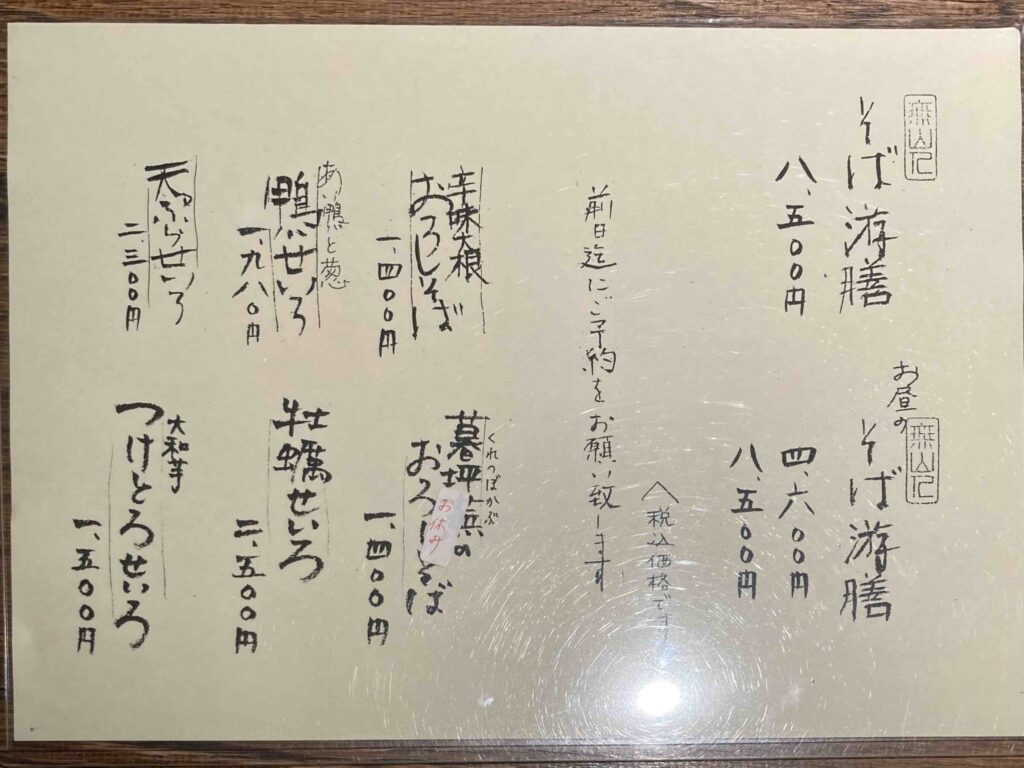 そば游膳
八、五〇〇円
お昼の
そば游膳
四、六〇〇円
八、五〇〇円
〈税込価格です〉
前日迄にご予約をお願い致します
辛味大根
おろしそば
一、四〇〇円
くれつぼかぶ
暮坪蕪の
おろしそば
お休み
一、四〇〇円
あい鴨と葱
鴨せいろ
一、九八〇円
牡蠣せいろ
二、五〇〇円
天ぷらせいろ
二、三〇〇円
大和芋
つけとろせいろ
一、五〇〇円